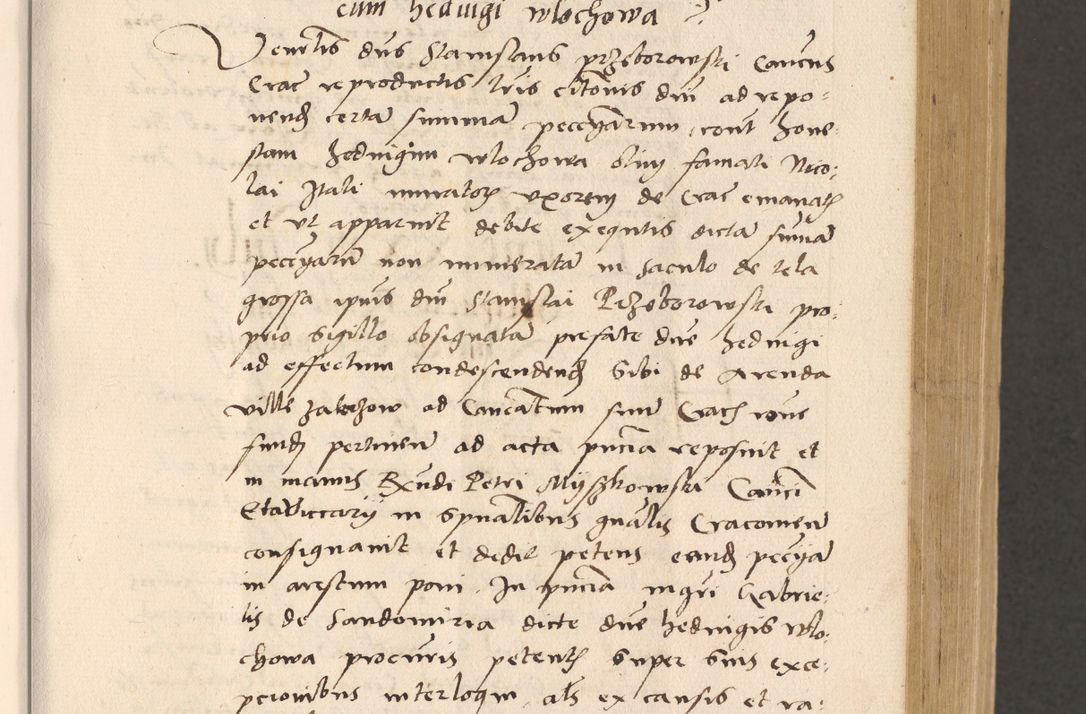 cum hedvigi wlochowa
Venerlis dns Stanislaus przeborowski Cancus
Crac reproductis lris citonis dni ad repo-
nend certa summa peccyarum cont hone-
stam hedvigim wlochowa olim famati Nico-
lai Itali muratoris uxorem de Crac emanatis
et ut apparuit debite exequtis dicta summa
peccyaru non numerata in saculo de tela
grossa ipius dni Stanislai Przeborowski pro-
prio sigillo obsignata prefate dne hedvigi
ad effectum condescendend sibi de Arenda
ville ad Cancatum suu Crac rone
fundi pertinen ad acta pncia reposuit et
in manus Rxndi Petri Myszkowski Canci
Et Viccarii in spualibus gnalis Cracovien
consignavit et dedit petens eand peccya
in arestum poni. In pncia mgri Gabrie-
lis de Sandomiria dicte dne hedvigis wlo-
chowa procuris petentis super suis exce-
pcionibus interloqui, als ex causis et ra-